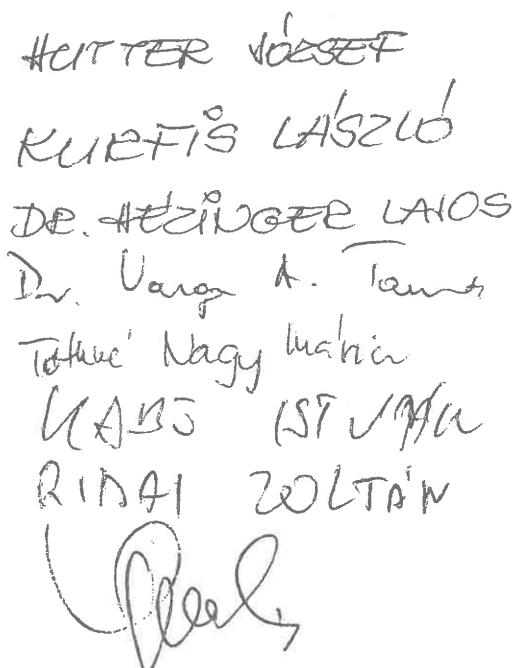 HUTTER JÓZSEF
KURFIS LÁSZLÓ
DR. HÉZINGER LAJOS
Dr. Varga A. Tamás
Tóthné Nagy Mária
ISTVÁN
ZOLTÁN